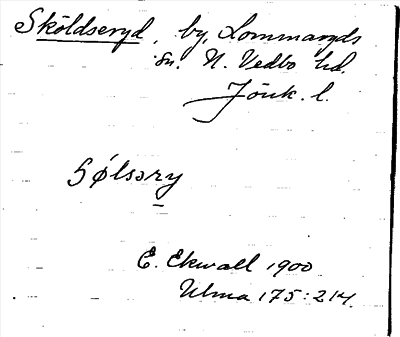 Sköldseryd, by, Lommaryds
sn. N. Vedbo hd.
Jönk. l.
sølsəry
E. Ekwall 1900
Ulma 175:214.